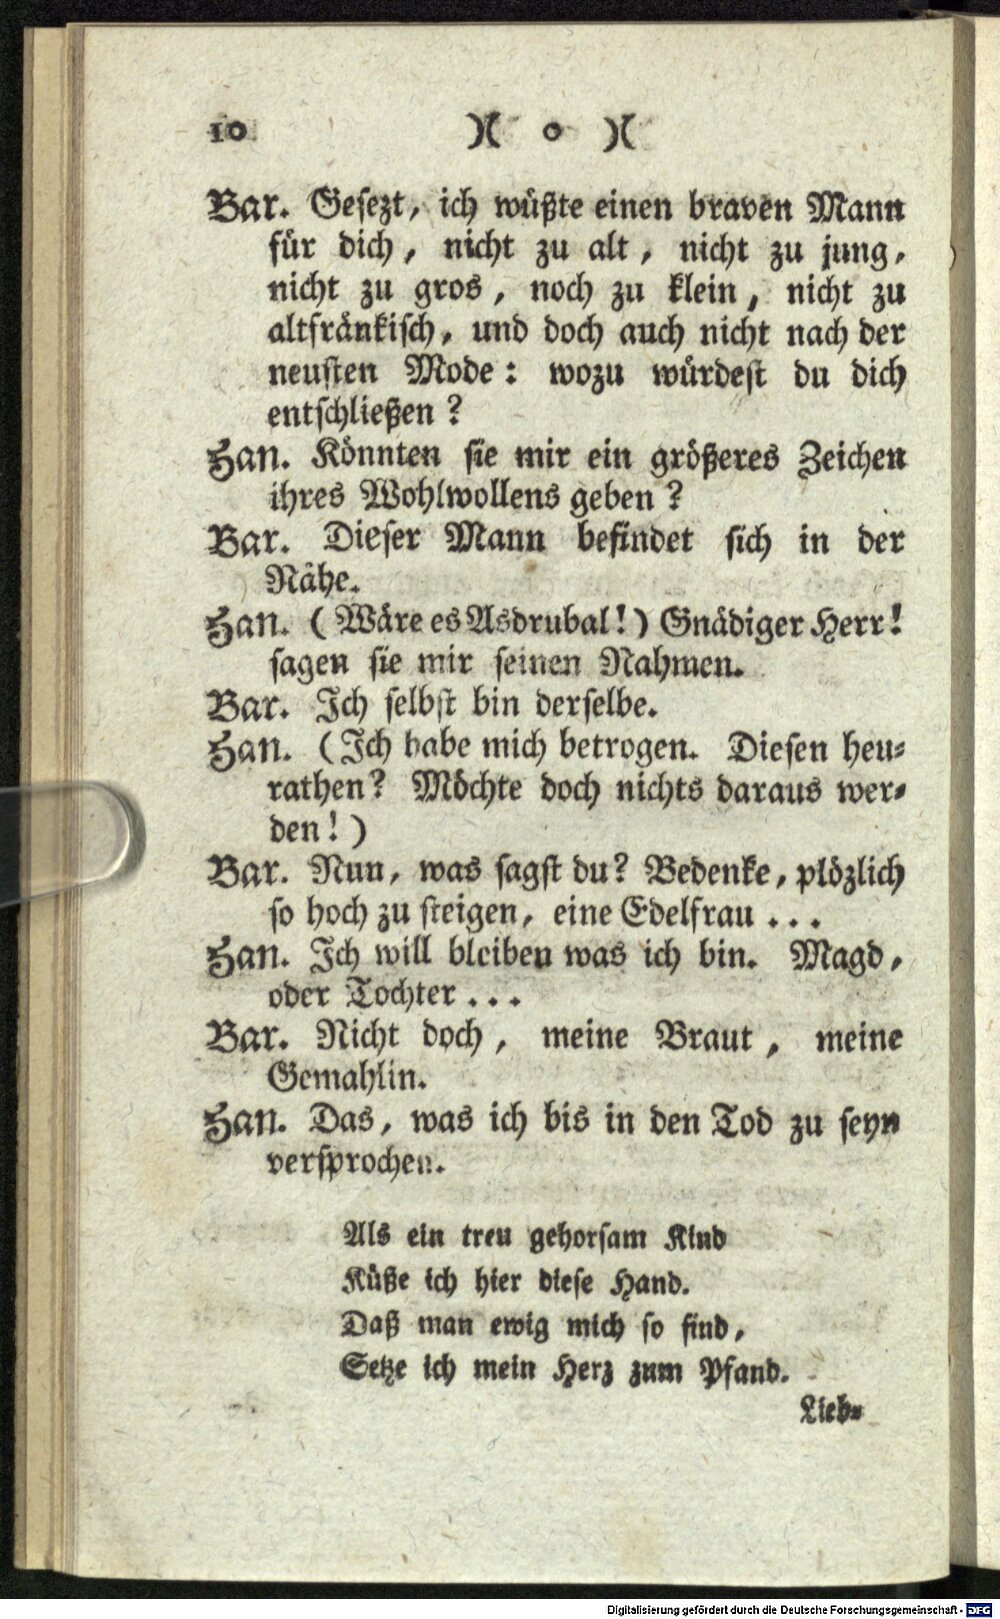 10 )( o )(
Bar. Gesezt, ich wüßte einen braven Mann
für dich, nicht zu alt, nicht zu jung,
nicht zu gros, noch zu klein, nicht zu
altfränkisch, und doch auch nicht nach der
neusten Mode: wozu würdest du dich
entschließen?
Han. Könnten sie mir ein größeres Zeichen
ihres Wohlwollens geben?
Bar. Dieser Mann befindet sich in der
Nähe.
Han. (Wäre es Asdrubal!) Gnädiger Herr!
sagen sie mir seinen Nahmen.
Bar. Ich selbst bin derselbe.
Han. (Ich habe mich betrogen. Diesen heu-
rathen? Möchte doch nichts daraus wer-
den!)
Bar. Nun, was sagst du? Bedenke, plözlich
so hoch zu steigen, eine Edelfrau ...
Han. Ich will bleiben was ich bin. Magd,
oder Tochter ...
Bar. Nicht doch, meine Braut, meine
Gemahlin.
Han. Das, was ich bis in den Tod zu seyn
versprochen.
Als ein treu gehorsam Kind
Küße ich hier diese Hand.
Daß man ewig mich so find,
Setze ich mein Herz zum Pfand.
Lieb-
Digitalisierung gefördert durch die Deutsche Forschungsgemeinschaft - DFG